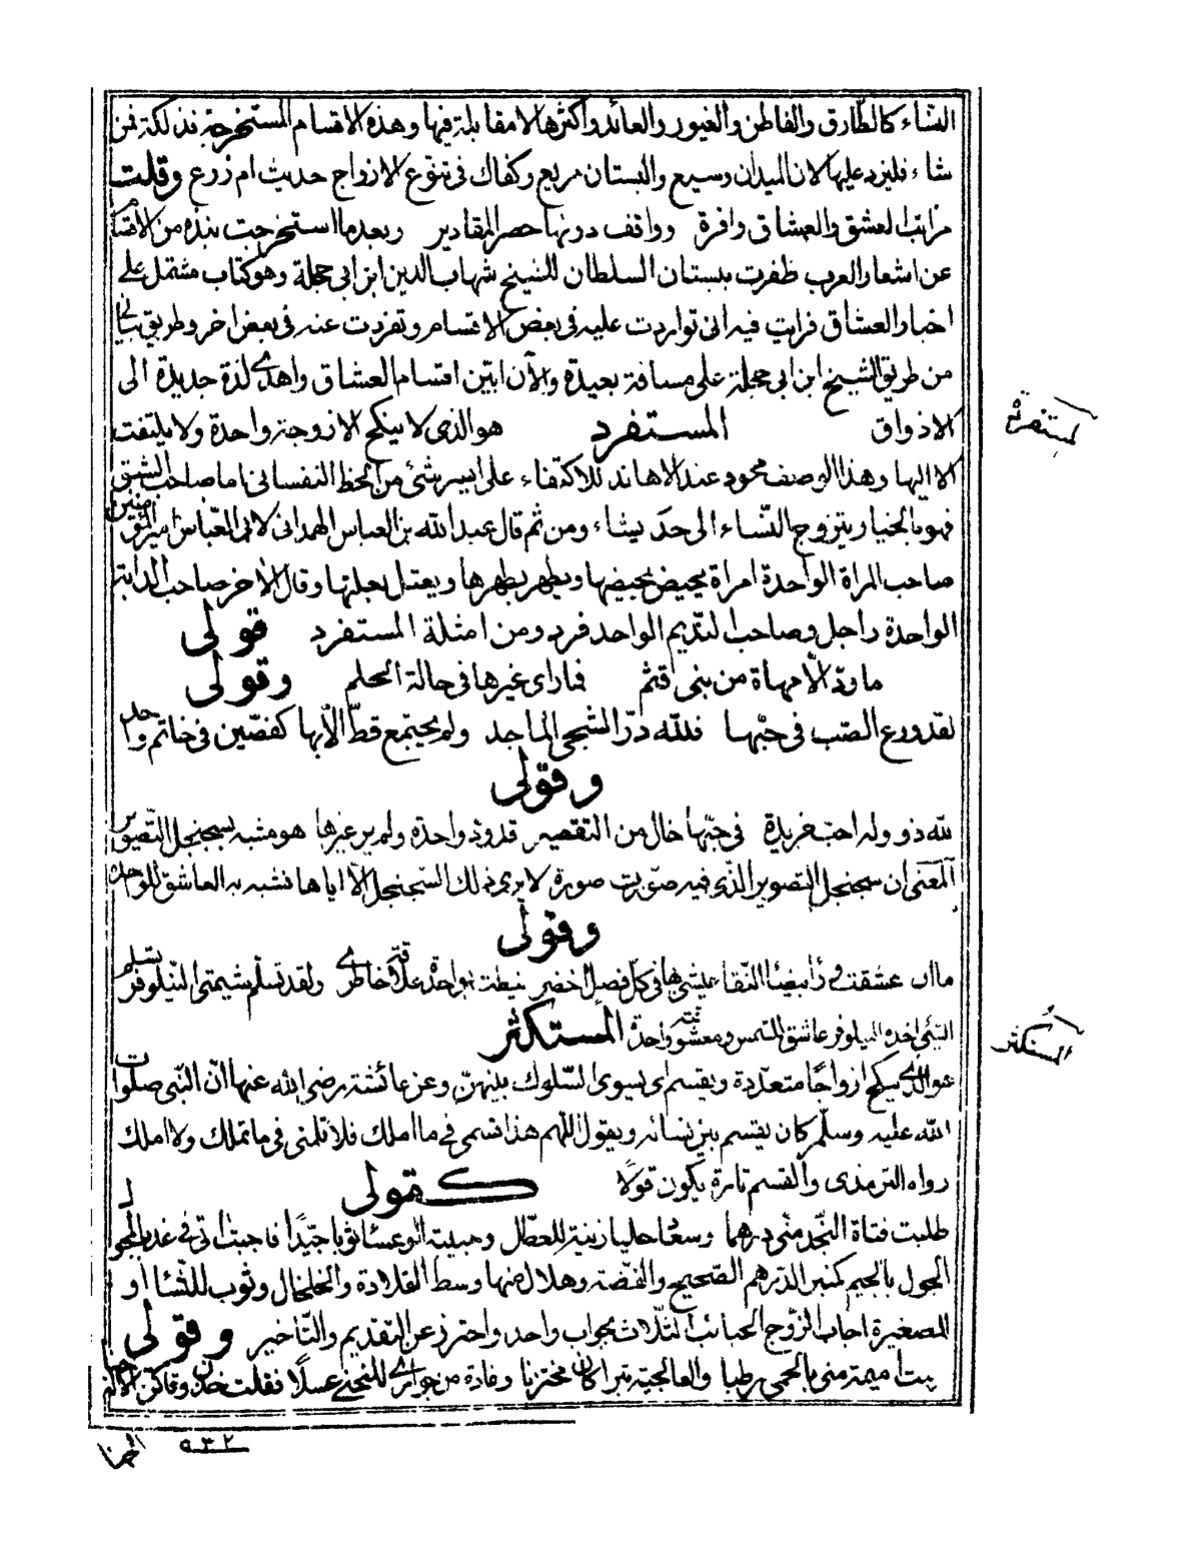 النساء كالطارق والفاطن والغيور والعائد واكثرها لا مقابلة فيها وهذه الاقسام المستخرجة فذلكة فمن
شاء فليزد عليها لان الميدان وسيع والبستان مريع وكفاك فى تنوع الازواج حديث ام زرع وقلت
مراتب العشق والعشاق وافرة وواقف دونها حصر المقادير وبعدما استخرجت نبذة من الاقسام
عن اشعار العرب ظفرت ببستان السلطان للشيخ شهاب الدين ابن ابى حجلة وهو كتاب مشتمل على
اخبار العشاق فرايت فيه انى تواردت عليه فى بعض الاقسام وتفردت عنه فى بعض اخر وطريق بيانى
من طريق الشيخ ابن ابى حجلة على مسافة بعيدة والآن ابين اقسام العشاق واهدى لذة جديدة الى
الاذواق المستفرد هو الذى لا ينكح الا زوجة واحدة ولا يلتفت
الا اليها وهذا الوصف محمود عند الاهاند للاكتفاء على ايسر شئ من الحظ النفسانى اما صاحب الشبق
فهو بالخيار يتزوج النساء الى حد يشاء ومن ثم قال عبد الله بن العباس الهمدانى لابى العباس امير المؤمنين
صاحب المراة الواحدة امراة يحيض بحيضها ويطهر بطهرها ويعتل بعلتها وقال الاخر صاحب الدابة
الواحدة راجل وصاحب النديم الواحد فرد ومن امثلة المستفرد قولى
ما ودّ الّا مهاة من بنى قثم فما راى غيرها فى حالة الحلم وقولى
لقد ورع الصّب فى حبّها فللّه درّ الشجى الماجد ولم يجتمع قطّ الّا بها كفصّين فى خاتم واحد
وقولى
لله ذو وله احب خريدة فى حبّها خال من التقصير قد ودّ واحدة ولم ير غيرها هو مشبه بسجنجل التصوير
المعنى ان سجنجل التصوير الذى فيه صورت صورة لا يرى ذلك السجنجل الّا اياها فشبه به العاشق للواحدة
وقولى
ما ان عشقت فى النقا بواحدة علاقة خاطرى ولقد تسلم شيمتى النيلوفر
النيلوفر عاشق الشمس ومعشوقته واحدة المستكثر
هو الذى ينكح ازواجًا متعدّدة ويقسم اى يسوى السّلوك بينهنّ وعن عائشة رضى الله عنها انّ النّبى صلوات
الله عليه وسلّم كان يقسم بين نسائه ويقول اللهم هذا قسمى فى ما املك فلا تلمنى فى ما تملك ولا املك
رواه الترمذى والقسم تارة يكون قولًا كقولى
طلبت فتاة النّجد منى درهما وسعاد حليا زينة للعطّال وحبيبة ثوبا جيّدًا فاجبت فى غد بالمجول
المجول بالجيم كمنبر الدّرهم الصّحيح والفضّة وهلال منها وسط القلادة والخلخال وثوب للنّساء او
للصغيرة اجاب الزّوج الحبائب الثّلاث بجواب واحد واحترز عن التقديم والتّاخير وقولى
اميمة منى بالحمى رطبا والعالجية تمرا كان مختزنا وغادة من جوارى عسلًا فقلت
المستفرد
المستكثر
٥٣٢